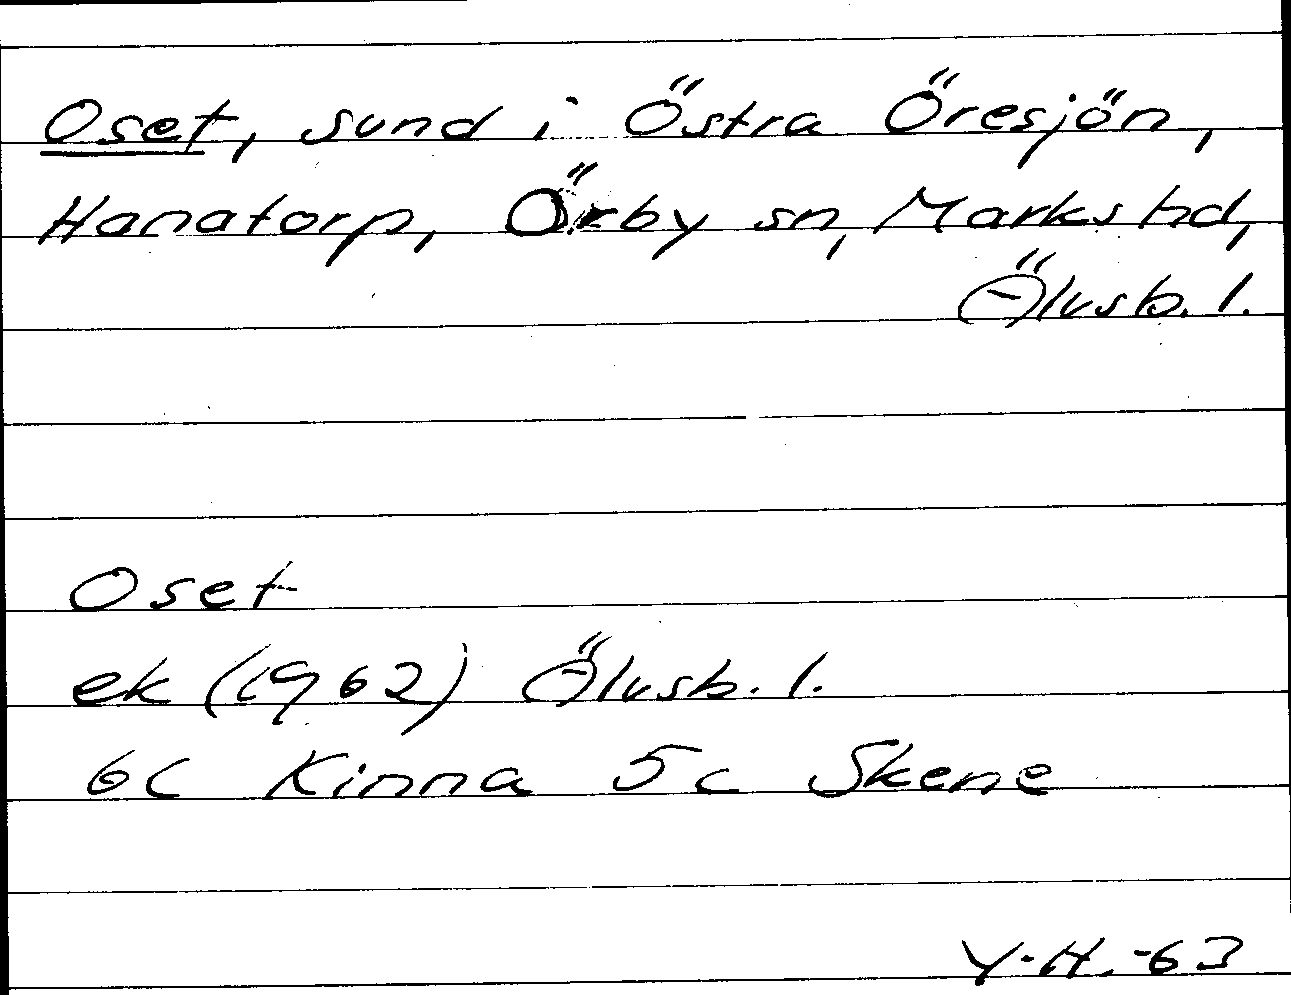 Oset, sund i Östra Öresjön,
Hanatorp, Örby sn, Marks hd,
Älvsb. l.
Oset
ek (1962) Älvsb. l.
6c Kinna 5c Skene
Y.H. -63